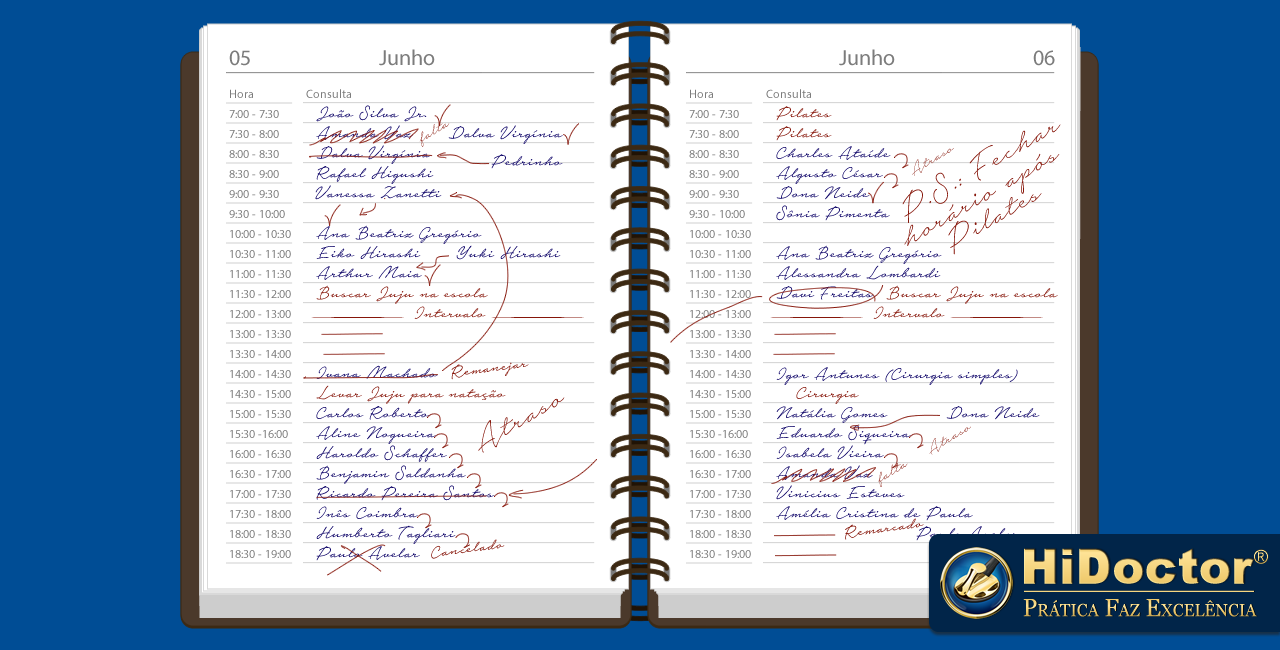 05 Junho
Hora Consulta
7:00 - 7:30 João Silva Jr.
7:30 - 8:00 Amanda Vaz falta Dalva Virgínia
8:00 - 8:30 Dalva Virgínia Pedrinho
8:30 - 9:00 Rafael Higushi
9:00 - 9:30 Vanessa Zanetti
9:30 - 10:00
10:00 - 10:30 Ana Beatriz Gregório
10:30 - 11:00 Eiko Hirashi Yuki Hirashi
11:00 - 11:30 Arthur Maia
11:30 - 12:00 Buscar Juju na escola
12:00 - 13:00 Intervalo
13:00 - 13:30
13:30 - 14:00
14:00 - 14:30 Ivana Machado Remanejar
14:30 - 15:00 Levar Juju para natação
15:00 - 15:30 Carlos Roberto
15:30 -16:00 Aline Nogueira
Atraso
16:00 - 16:30 Haroldo Schaffer
16:30 - 17:00 Benjamin Saldanha
17:00 - 17:30 Ricardo Pereira Santos
17:30 - 18:00 Inês Coimbra
18:00 - 18:30 Humberto Tagliari
18:30 - 19:00 Paulo Avelar Cancelado
Junho 06
Hora Consulta
7:00 - 7:30 Pilates
7:30 - 8:00 Pilates
8:00 - 8:30 Charles Ataíde
Atraso
8:30 - 9:00 Algusto César
9:00 - 9:30 Dona Neide
9:30 - 10:00 Sônia Pimenta
P.S.: Fechar
horário após
Pilates
10:00 - 10:30
10:30 - 11:00 Ana Beatriz Gregório
11:00 - 11:30 Alessandra Lombardi
11:30 - 12:00 Davi Freitas Buscar Juju na escola
12:00 - 13:00 Intervalo
13:00 - 13:30
13:30 - 14:00
14:00 - 14:30 Igor Antunes (Cirurgia simples)
14:30 - 15:00 Cirurgia
15:00 - 15:30 Natália Gomes Dona Neide
15:30 -16:00 Eduardo Siqueira Atraso
16:00 - 16:30 Isabela Vieira
16:30 - 17:00 Amanda Vaz falta
17:00 - 17:30 Vinicius Esteves
17:30 - 18:00 Amélia Cristina de Paula
18:00 - 18:30 Remarcado
18:30 - 19:00
HiDoctor®
PRÁTICA FAZ EXCELÊNCIA